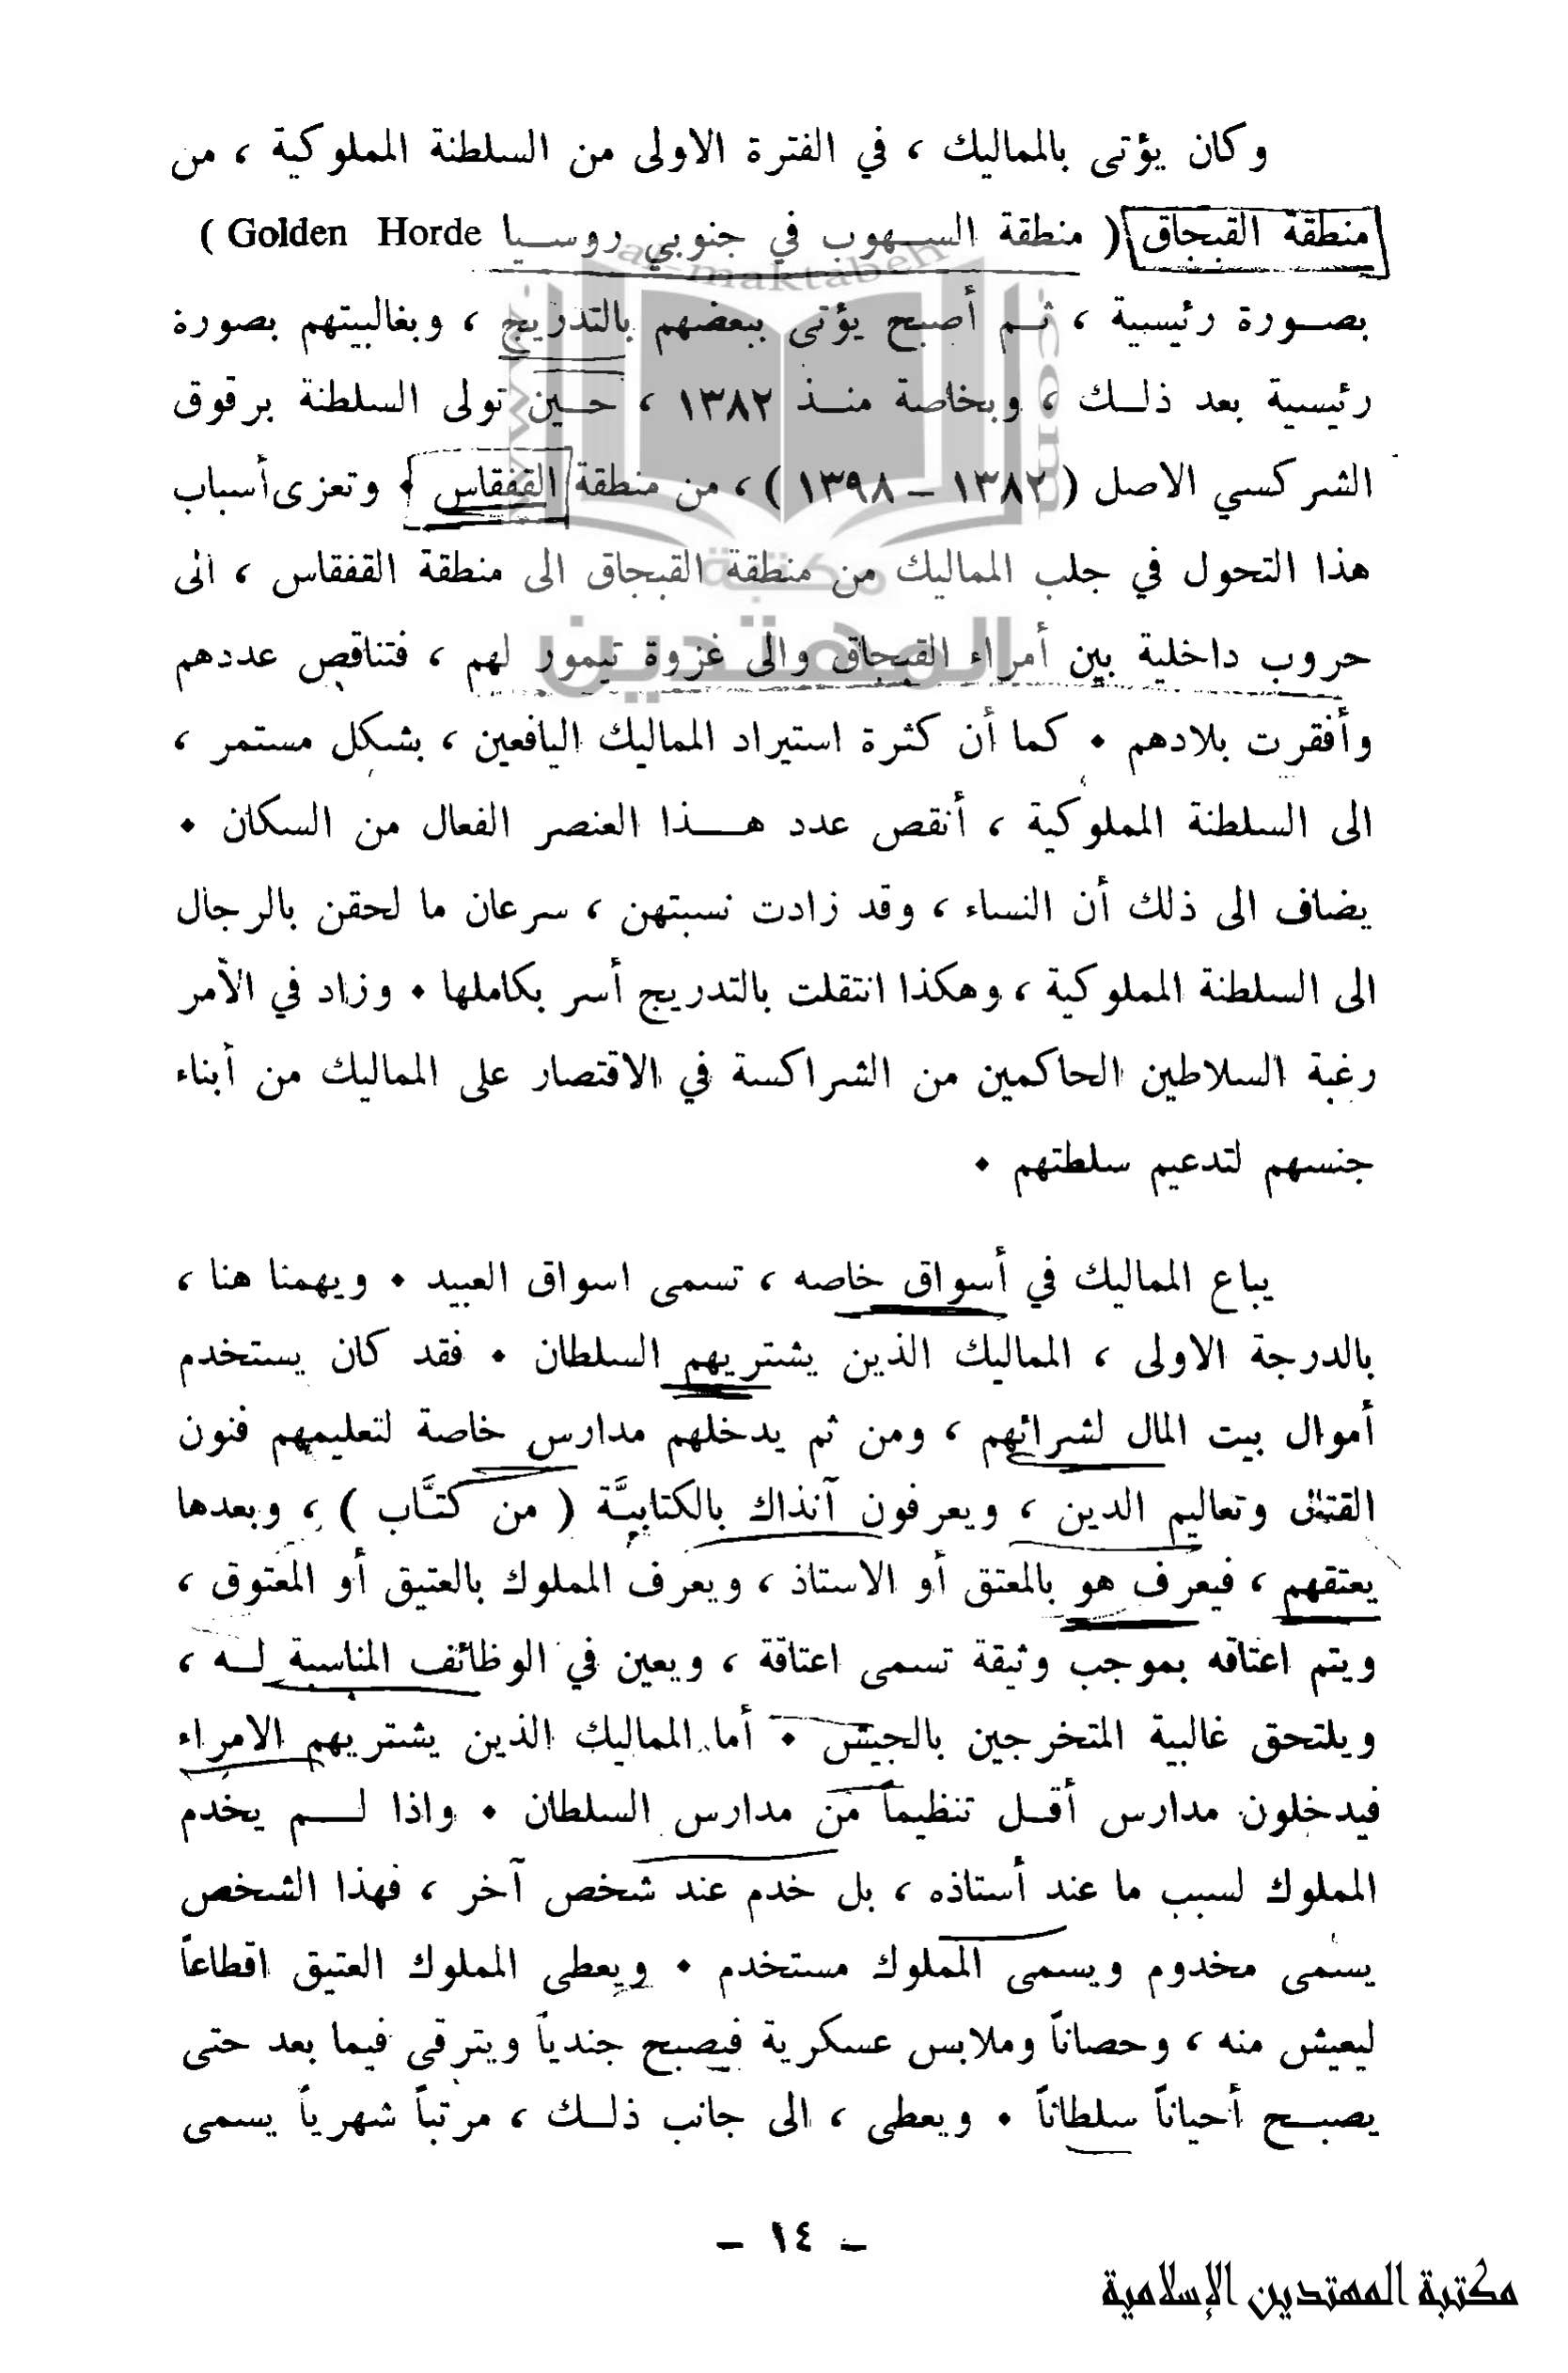 وكان يؤتى بالمماليك ، في الفترة الاولى من السلطنة المملوكية ، من
منطقة القبجاق ( منطقة السهوب في جنوبي روسيا Golden Horde )
بصورة رئيسية ، ثم أصبح يؤتى ببعضهم بالتدريج ، وبغالبيتهم بصورة
رئيسية بعد ذلك ، وبخاصة منذ ١٣٨٢ ، حين تولى السلطنة برقوق
الشركسي الاصل ( ١٣٨٢ – ١٣٩٨ ) ، من منطقة القفقاس . وتعزى أسباب
هذا التحول في جلب المماليك من منطقة القبجاق الى منطقة القفقاس ، الى
حروب داخلية بين أمراء القبجاق والى غزوة تيمور لهم ، فتناقص عددهم
وأفقرت بلادهم . كما أن كثرة استيراد المماليك اليافعين ، بشكل مستمر ،
الى السلطنة المملوكية ، أنقص عدد هذا العنصر الفعال من السكان .
يضاف الى ذلك أن النساء ، وقد زادت نسبتهن ، سرعان ما لحقن بالرجال
الى السلطنة المملوكية ، وهكذا انتقلت بالتدريج أسر بكاملها . وزاد في الأمر
رغبة السلاطين الحاكمين من الشراكسة في الاقتصار على المماليك من أبناء
جنسهم لتدعيم سلطتهم .
يباع المماليك في أسواق خاصه ، تسمى اسواق العبيد . ويهمنا هنا ،
بالدرجة الاولى ، المماليك الذين يشتريهم السلطان . فقد كان يستخدم
أموال بيت المال لشرائهم ، ومن ثم يدخلهم مدارس خاصة لتعليمهم فنون
القتال وتعاليم الدين ، ويعرفون آنذاك بالكتابيَّة ( من كتَّاب ) ، وبعدها
يعتقهم ، فيعرف هو بالمعتق أو الاستاذ ، ويعرف المملوك بالعتيق أو المعتوق ،
ويتم اعتاقه بموجب وثيقة تسمى اعتاقة ، ويعين في الوظائف المناسبة له ،
ويلتحق غالبية المتخرجين بالجيش . أما المماليك الذين يشتريهم الامراء
فيدخلون مدارس أقل تنظيماً من مدارس السلطان . واذا لم يخدم
المملوك لسبب ما عند أستاذه ، بل خدم عند شخص آخر ، فهذا الشخص
يسمى مخدوم ويسمى المملوك مستخدم . ويعطى المملوك العتيق اقطاعاً
ليعيش منه ، وحصاناً وملابس عسكرية فيصبح جندياً ويترقى فيما بعد حتى
يصبح أحياناً سلطاناً . ويعطى ، الى جانب ذلك ، مرتباً شهرياً يسمى
– ١٤ –
مكتبة المهتدين الإسلامية
www.al-maktabeh.com
مكتبة
المهتدين